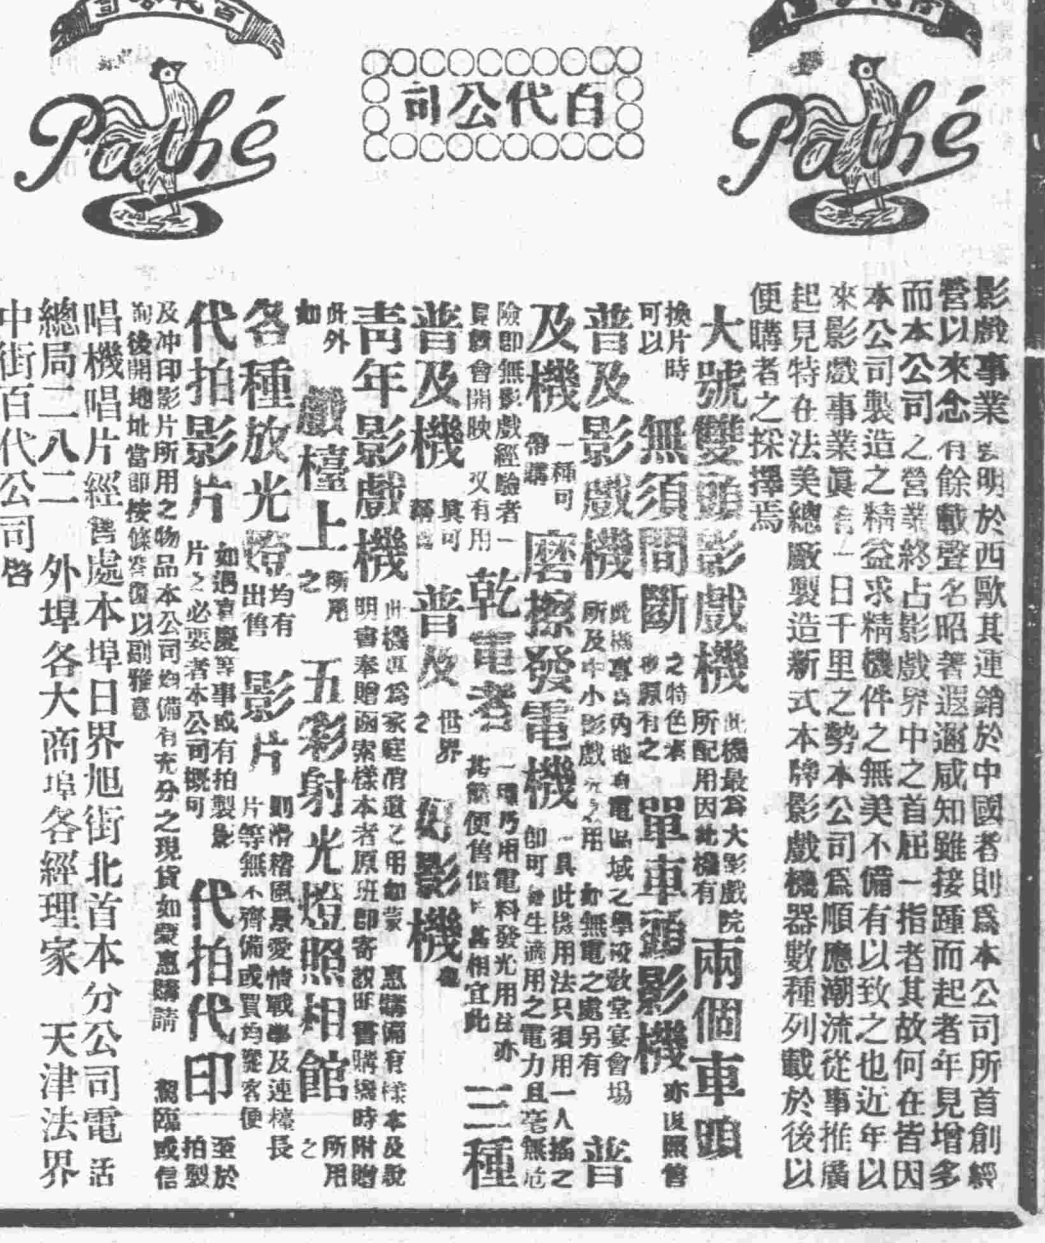 百代公司
Pathé
百代公司
百代公司
Pathé
影戲事業發明於西歐其連銷於中國者則爲本公司所首創經
營以來念有餘載聲名昭著遐邇咸知雖接踵而起者年見增多
而本公司之營業終占影戲界中之首屈一指者其故何在皆因
本公司製造之精益求精機件之無美不備有以致之也近年以
來影戲事業眞有一日千里之勢本公司爲順應潮流從事推廣
起見特在法美總廠製造新式本牌影戲機器數種列載於後以
便購者之採擇焉
大號雙頭影戲機 此機最爲大影戲院所配用因此機有 兩個車頭
換片時可以 無須間斷 之特色 原有之 單車頭影機 亦復照售
普及影戲機 此機專爲內地有電區域之學校教堂宴會場所及中小影戲 之用 如無電之處另有 普
及機 一種可 購 磨擦發電機 一具此機用法只須用一人搖之卽可 生適用之電力且毫無危
險卽無影戲經驗者 會開映 又有用 乾電者 一種乃用電料發光用 亦 簡便售價 相宜此 三種
普及機 眞可稱爲 普及 世界之 好影機
靑年影戲機 此機 爲家庭消遣之用如蒙 惠購備有樣本及說明書奉贈函索樣本者原班卽寄 購機時附贈
此外如 戲檯上 所用之 五彩射光燈照相館 所用之
各種放光燈 均有出售 影片 則滑稽風景愛情戰爭及連檯長片等無不齊備或買均 客便
代拍影片 如遇喜慶等事或有拍製影片之必要者本公司概可 代拍代印 至於拍製
及冲印影片所用之物品本公司均備有充分之現貨如蒙惠購請 臨或信
詢後開地址當卽按條答覆以副雅意
唱機唱片經售處本埠日界旭街北首本分公司電話
總局二八二 外埠各大商埠各經理家 天津法界
中街百代公司啓